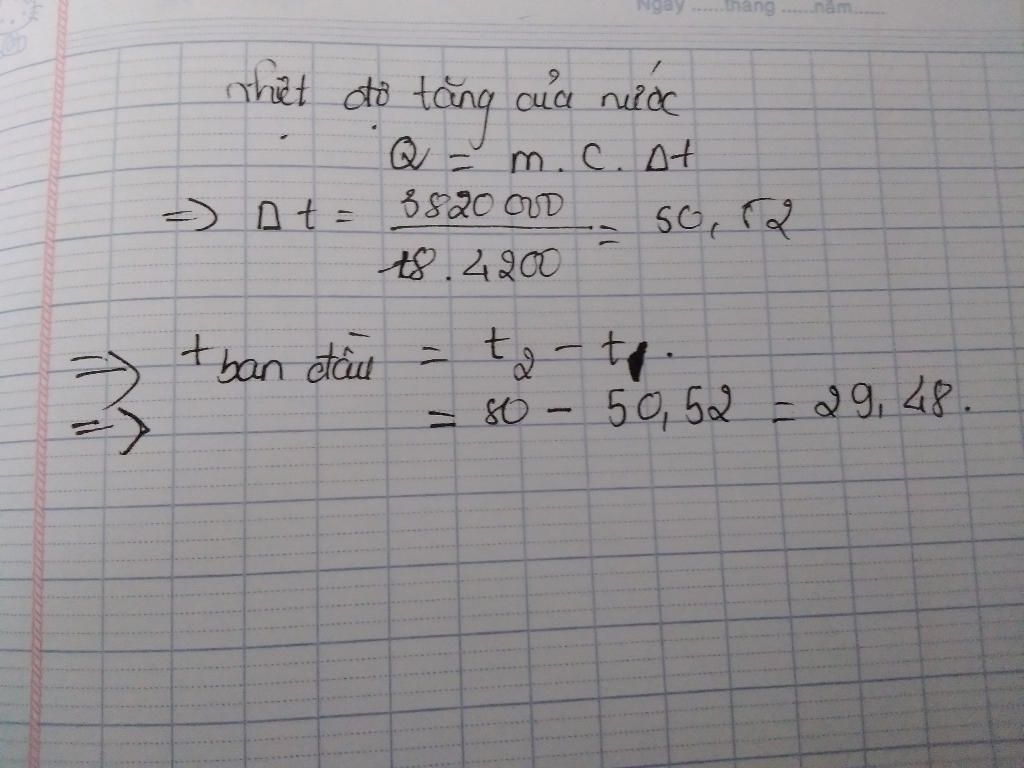 Ngày ......tháng ......năm......
nhiệt độ tăng của nước
Q = m. C. Δt
=> Δt = 3820000 / 18.4200 = 50,52
=> t ban đầu = t2 - t1.
=> = 80 - 50,52 = 29,48.